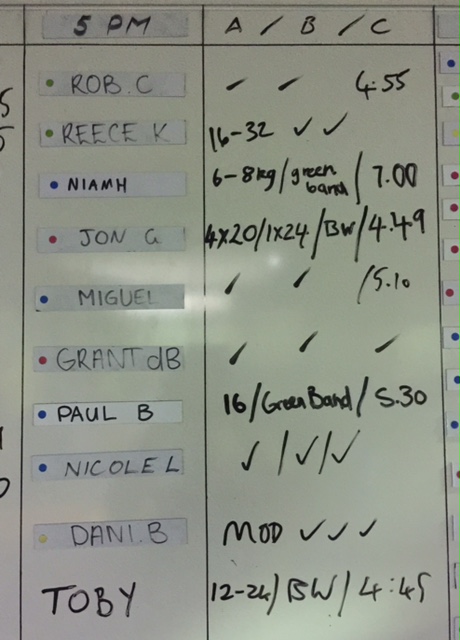 5 PM A / B / C
ROB.C / / 4:55
REECE K 16-32 ✓ ✓
NIAMH 6-8kg/green band / 7.00
JON G 4x20/1x24/BW/4.49
MIGUEL / / /5.10
GRANT dB / / /
PAUL B 16/Green Band/5.30
NICOLE L ✓ / ✓ / ✓
DANI.B MOD ✓ ✓ ✓
TOBY 12-24/BW/4:45